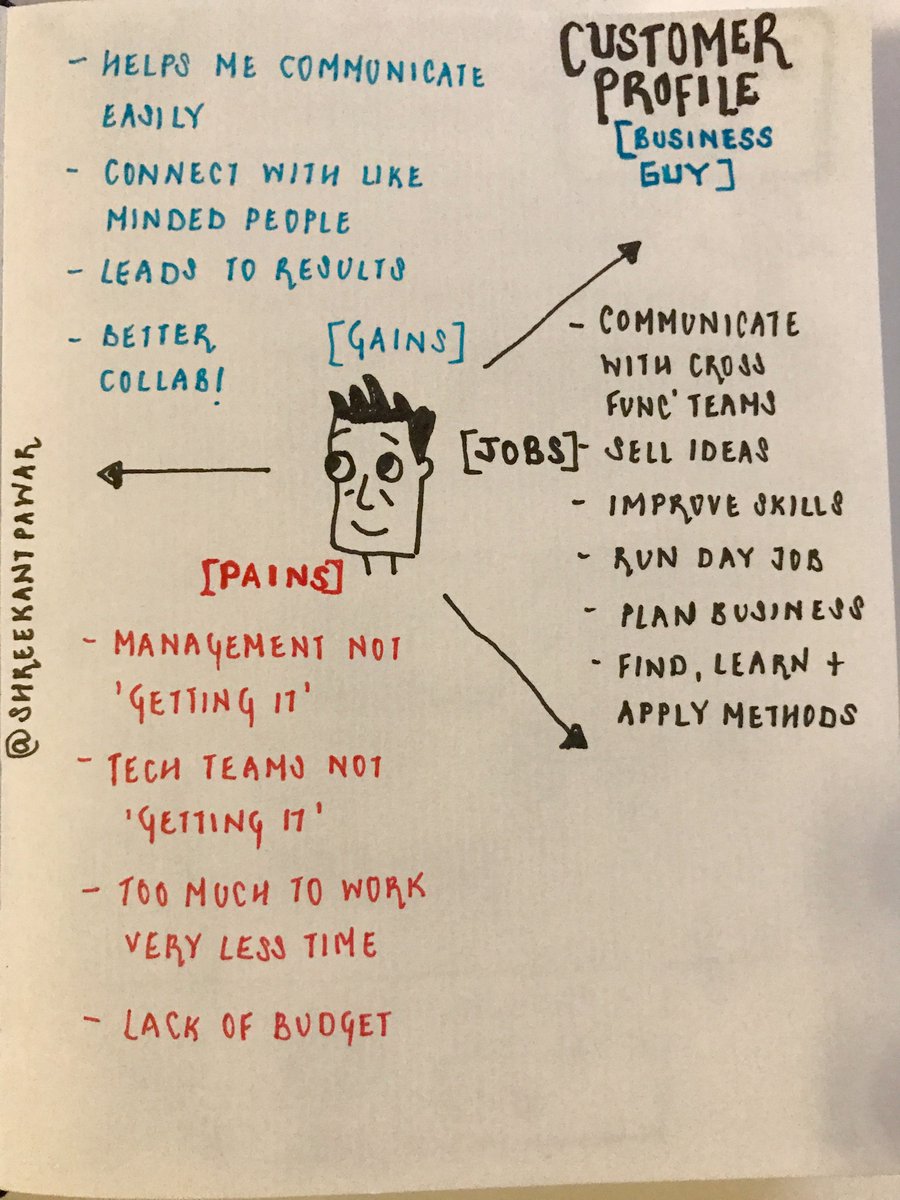 CUSTOMER
PROFILE
[BUSINESS
GUY]
- HELPS ME COMMUNICATE
EASILY
- CONNECT WITH LIKE
MINDED PEOPLE
- LEADS TO RESULTS
- BETTER
COLLAB!
[GAINS]
[JOBS]
- COMMUNICATE
WITH CROSS
FUNC' TEAMS
- SELL IDEAS
- IMPROVE SKILLS
- RUN DAY JOB
- PLAN BUSINESS
- FIND, LEARN +
APPLY METHODS
[PAINS]
- MANAGEMENT NOT
'GETTING IT'
- TECH TEAMS NOT
'GETTING IT'
- TOO MUCH TO WORK
VERY LESS TIME
- LACK OF BUDGET
@SHREEKANTPAWAR